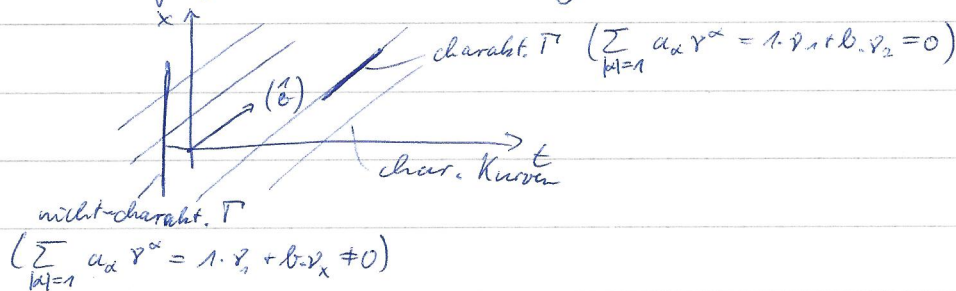 x
charakt. Γ (∑_{|α|=1} a_α γ^α = 1·γ_1 + b·γ_2 = 0)
(1 b)
t
char. Kurven
nicht-charakt. Γ
(∑_{|α|=1} a_α γ^α = 1·γ_1 + b·γ_x ≠ 0)